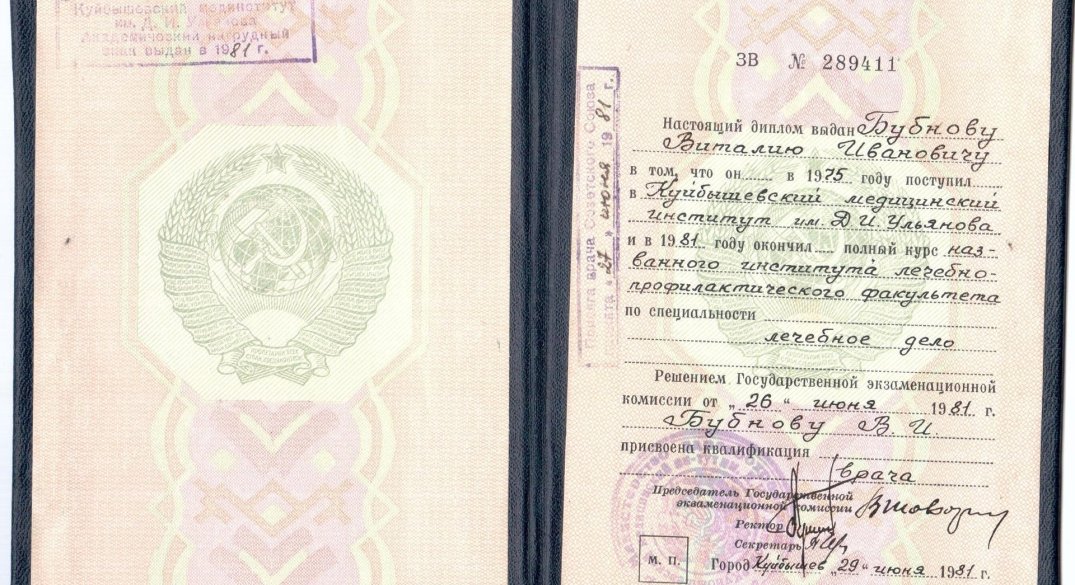 Куйбышевский мединститут
им. Д. И. Ульянова
Академический нагрудный
знак выдан в 1981 г.
ЗВ № 289411
Присяга врача Советского Союза
принята „27„ июня 1981 г.
Настоящий диплом выдан Бубнову
Виталию Ивановичу
в том, что он в 1975 году поступил
в Куйбышевский медицинский
институт им. Д. И. Ульянова
и в 1981 году окончил полный курс наз-
ванного института лечебно-
профилактического факультета
по специальности
лечебное дело
Решением Государственной экзаменационной
комиссии от „26“ июня 1981 г.
Бубнову В. И.
присвоена квалификация
врача
Председатель Государственной
экзаменационной комиссии
Ректор
Секретарь
М. П.
Город Куйбышев „29“ июня 1981 г.